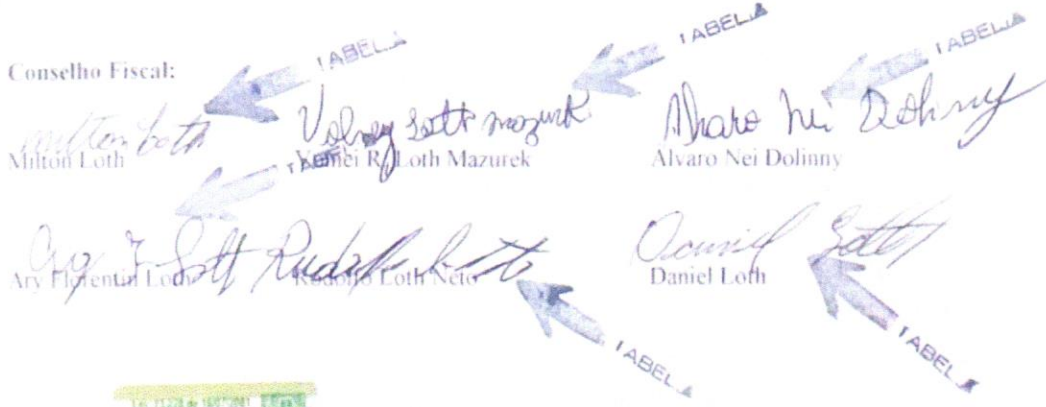 Conselho Fiscal:
TABELA TABELA TABELA
Milton Loth Volney Loth Mazurek Alvaro Nei Dolinny
Milton Loth R. Loth Mazurek Alvaro Nei Dolinny
Ary F. Loth Rudolfo Loth Daniel Loth
Ary Florentin Loth Rodolfo Loth Neto Daniel Loth
TABELA TABELA